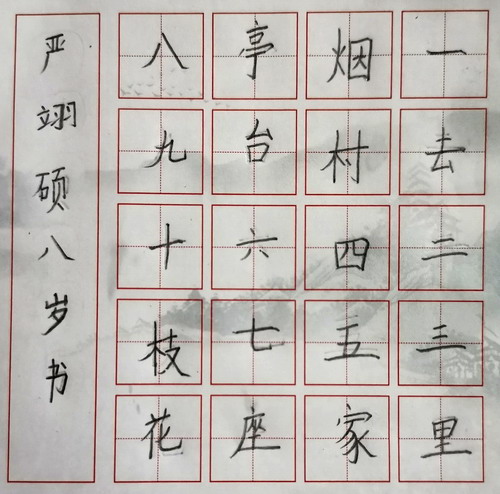 一去二三里
烟村四五家
亭台六七座
八九十枝花
严翊硕八岁书